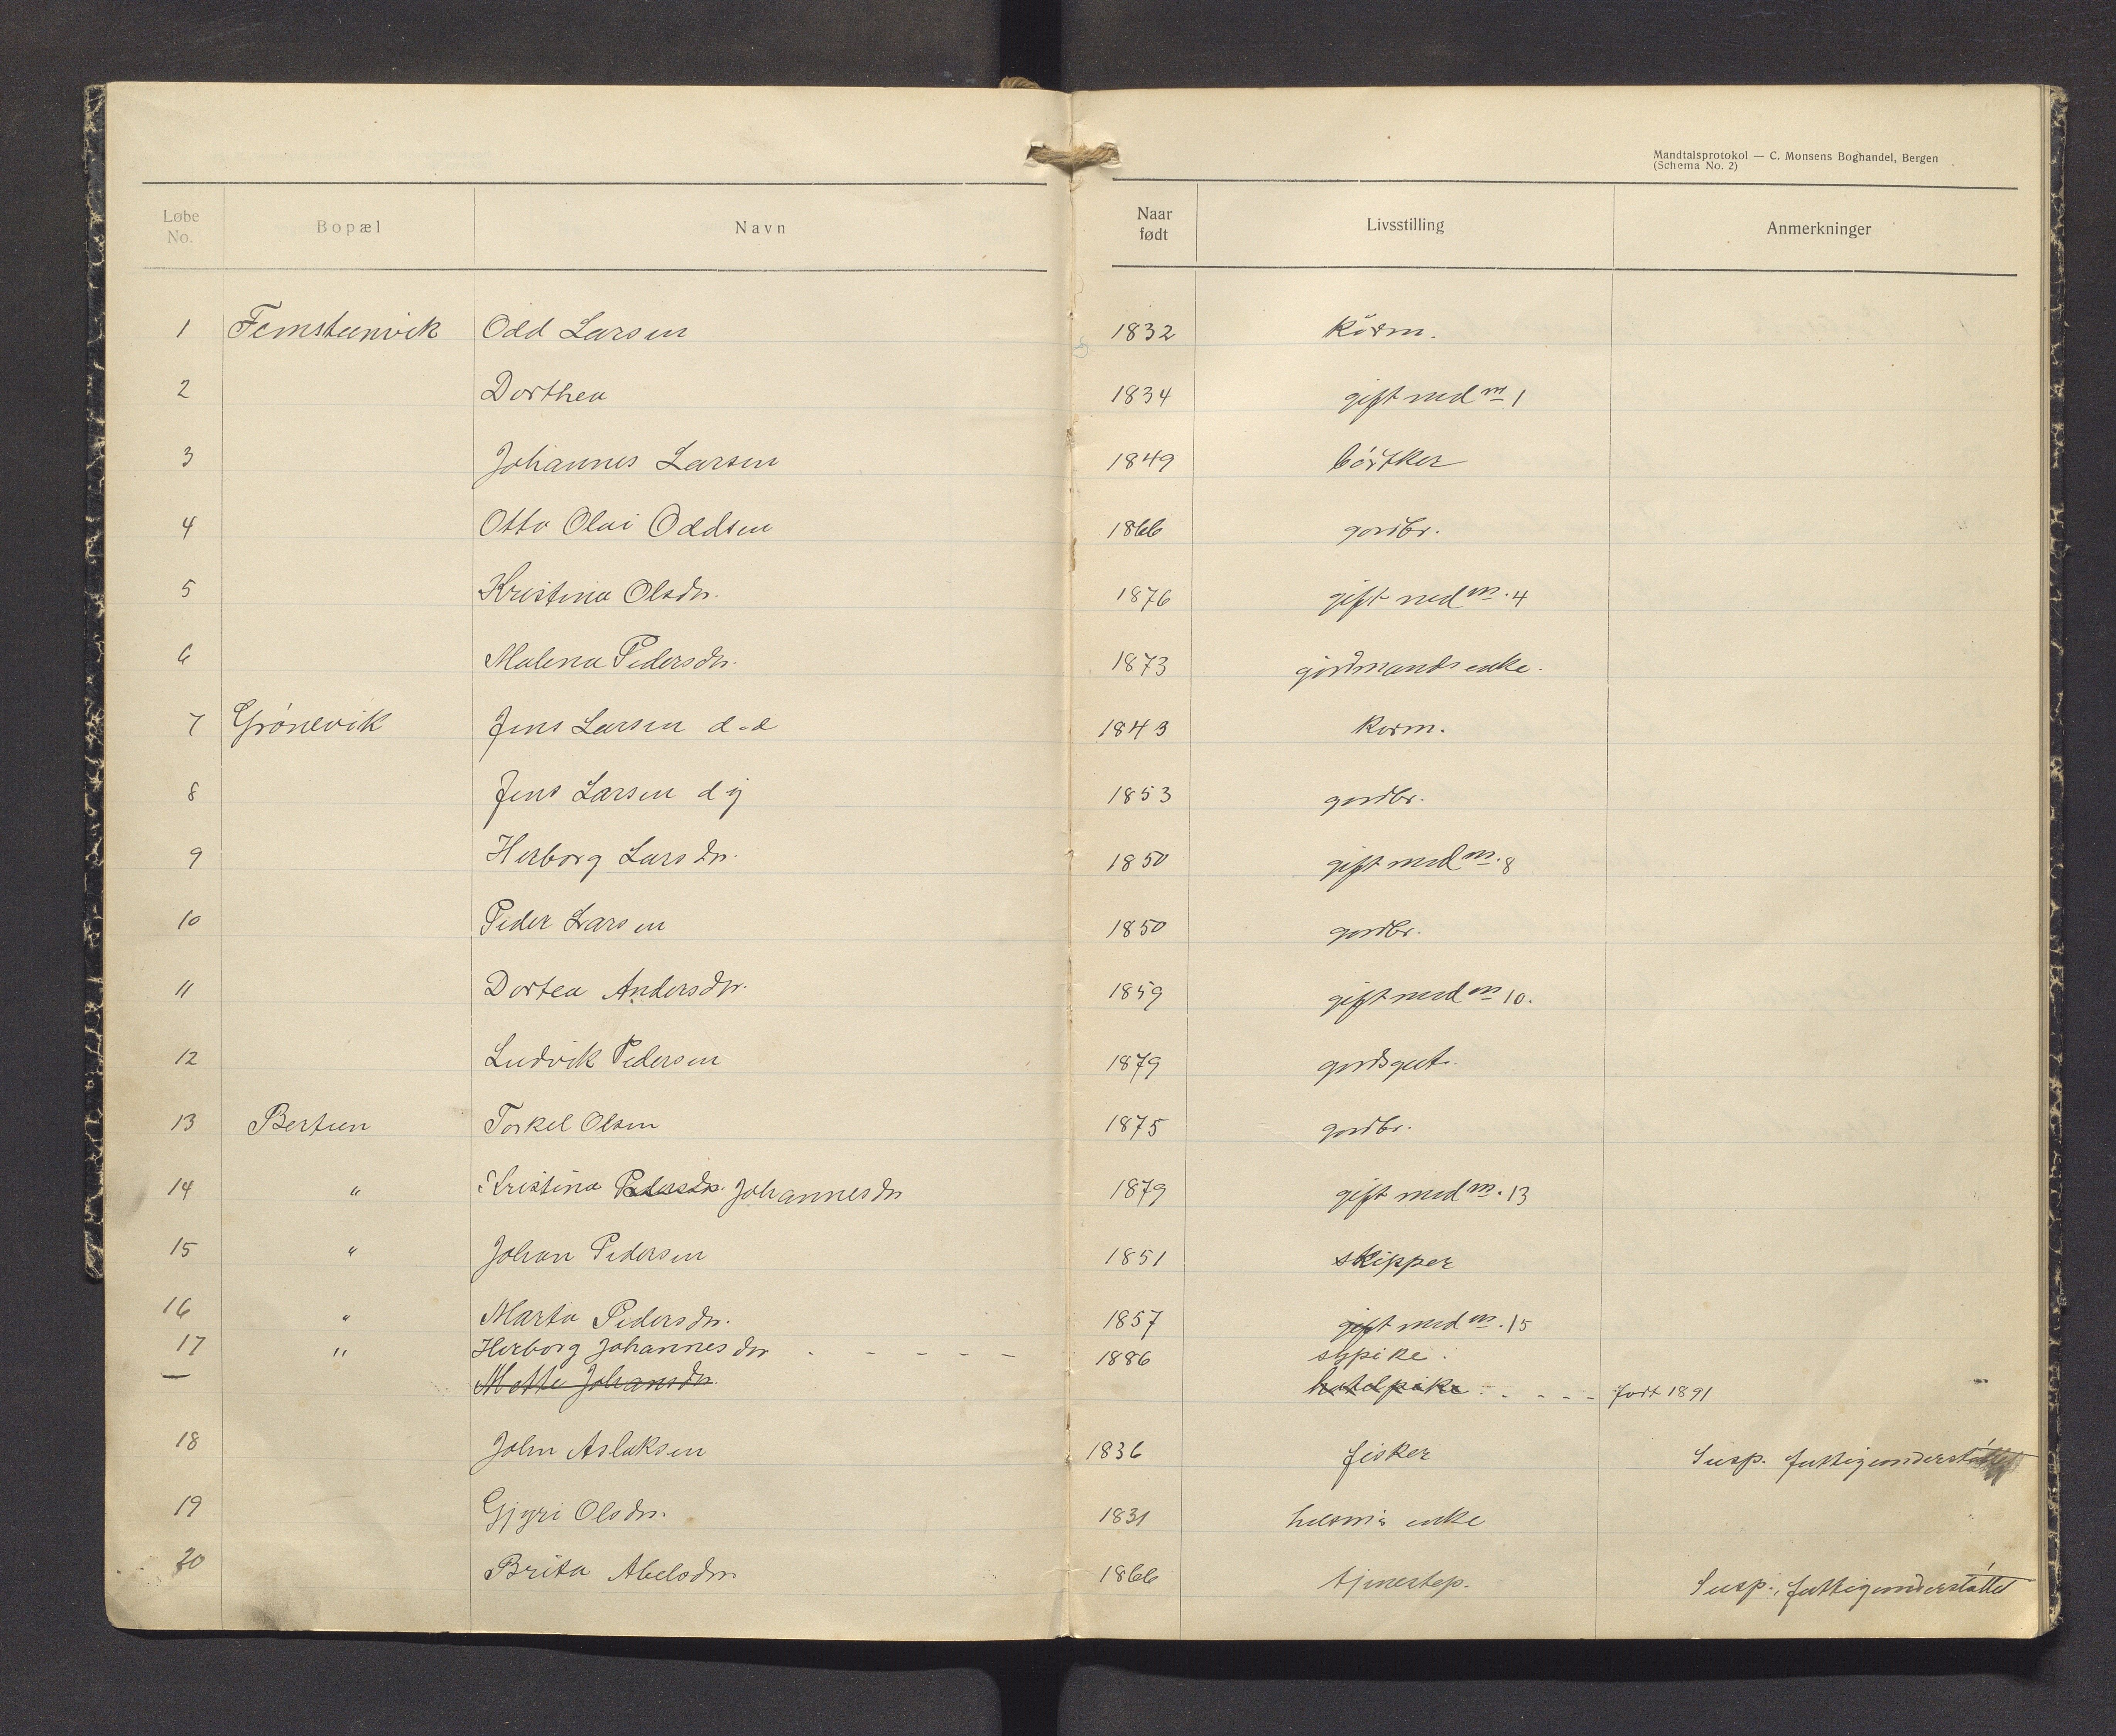 Mandtalsprotokol — C. Monsens Boghandel, Bergen
(Schema No. 2)
Løbe No. Bopæl Navn Naar født Livsstilling Anmerkninger
1 Femsteinvik Odd Larsen 1832 kårm.
2 Dorthea 1834 gift med nr 1
3 Johannes Larsen 1849 bøtker
4 Otto Olai Oddsen 1866 gardbr.
5 Kristina Olsdr. 1876 gift med nr. 4
6 Malena Pedersdr. 1873 gardmands enke.
7 Grönevik Jens Larsen d.e 1843 karm.
8 Jens Larsen d y 1853 gardbr.
9 Herborg Larsdr. 1850 gift med nr. 8
10 Peder Larsen 1850 gardbr.
11 Dortea Andersdr. 1859 gift med nr 10.
12 Ludvik Pedersen 1879 gardsgut.
13 Bertun Torkel Olsen 1875 gardbr.
14 " Kristina Pedersdr. Johannesdr 1879 gift med nr. 13
15 " Johan Pedersen 1851 skipper
16 " Marta Pedersdr. 1857 gift med nr. 15
17 " Herborg Johannesdr - - - - - 1886 sypike.
— Mette Johansdr. hotelpike - - - - født 1891
18 John Aslaksen 1836 fisker Susp. fattigunderstøttet
19 Gjyri Olsdr. 1831 husm.s enke
20 Brita Abelsdr. 1866 tjenestep. Susp., fattigunderstøttet